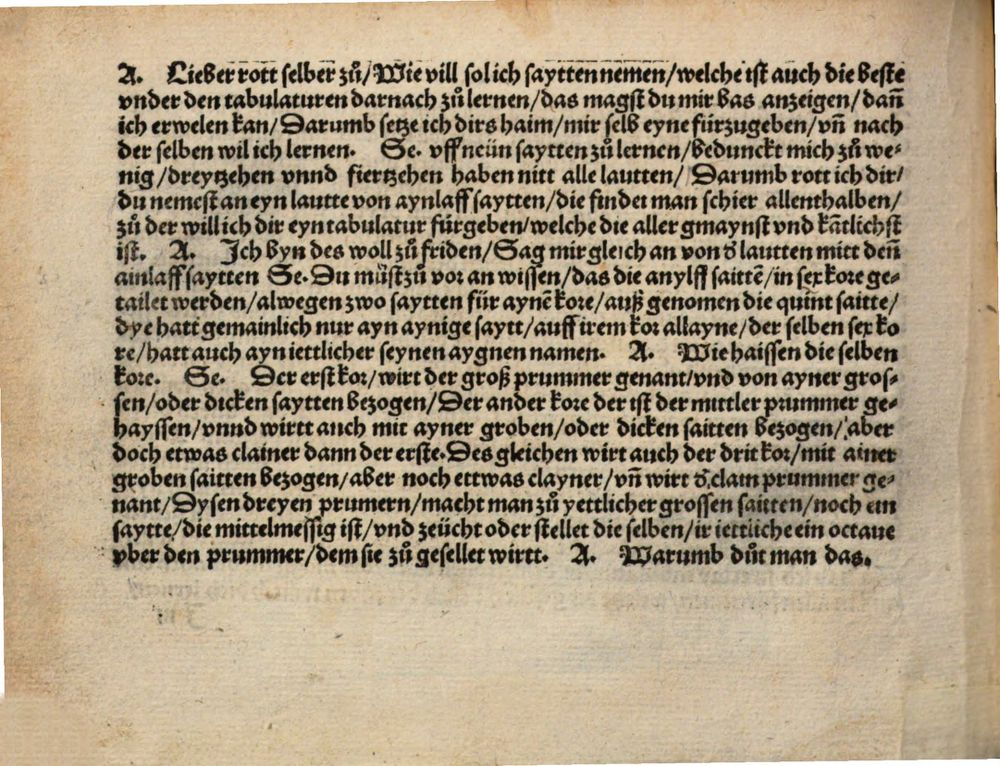 A. Lieber rott selber zů/Wie vill sol ich saytten nemen/welche ist auch die beste
vnder den tabulaturen darnach zů lernen/das magst du mir bas anzeigen/dañ
ich erwelen kan/Darumb setze ich dirs haim/mir selb eyne fürzugeben/vñ nach
der selben wil ich lernen. Se. vff neün saytten zů lernen/bedunckt mich zů we⸗
nig/dreytzehen vnnd fiertzehen haben nitt alle lautten/Darumb rott ich dir/
du nemest an eyn lautte von aynlaff saytten/die findet man schier allenthalben/
zů der will ich dir eyn tabulatur fürgeben/welche die aller gmaynst vnd kãtlichst
ist. A. Ich byn des woll zů friden/Sag mir gleich an von d̕ lautten mitt deñ
ainlaff saytten Se. Du müst zů vor an wissen/das die anylff saittẽ/in sex kore ge⸗
tailet werden/alwegen zwo saytten für aynẽ kore/auß genomen die quint saitte/
dye hatt gemainlich nur ayn aynige saytt/auff irem kor allayne/der selben sex ko
re/hatt auch ayn iettlicher seynen aygnen namen. A. Wie haissen die selben
kore. Se. Der erst kor/wirt der groß prummer genant/vnd von ayner gros⸗
sen/oder dicken saytten bezogen/Der ander kore der ist der mittler prummer ge⸗
hayssen/vnnd wirtt auch mit ayner groben/oder dicken saitten bezogen/aber
doch etwas clainer dann der erste. Des gleichen wirt auch der drit kor/mit ainer
groben saitten bezogen/aber noch ettwas clayner/vñ wirt d̕ clain prummer ge⸗
nant/Dysen dreyen prumern/macht man zů yettlicher grossen saitten/noch ein
saytte/die mittelmessig ist/vnd zeücht oder stellet die selben/ir iettliche ein octaue
vber den prummer/dem sie zů gesellet wirtt. A. Warumb důt man das.